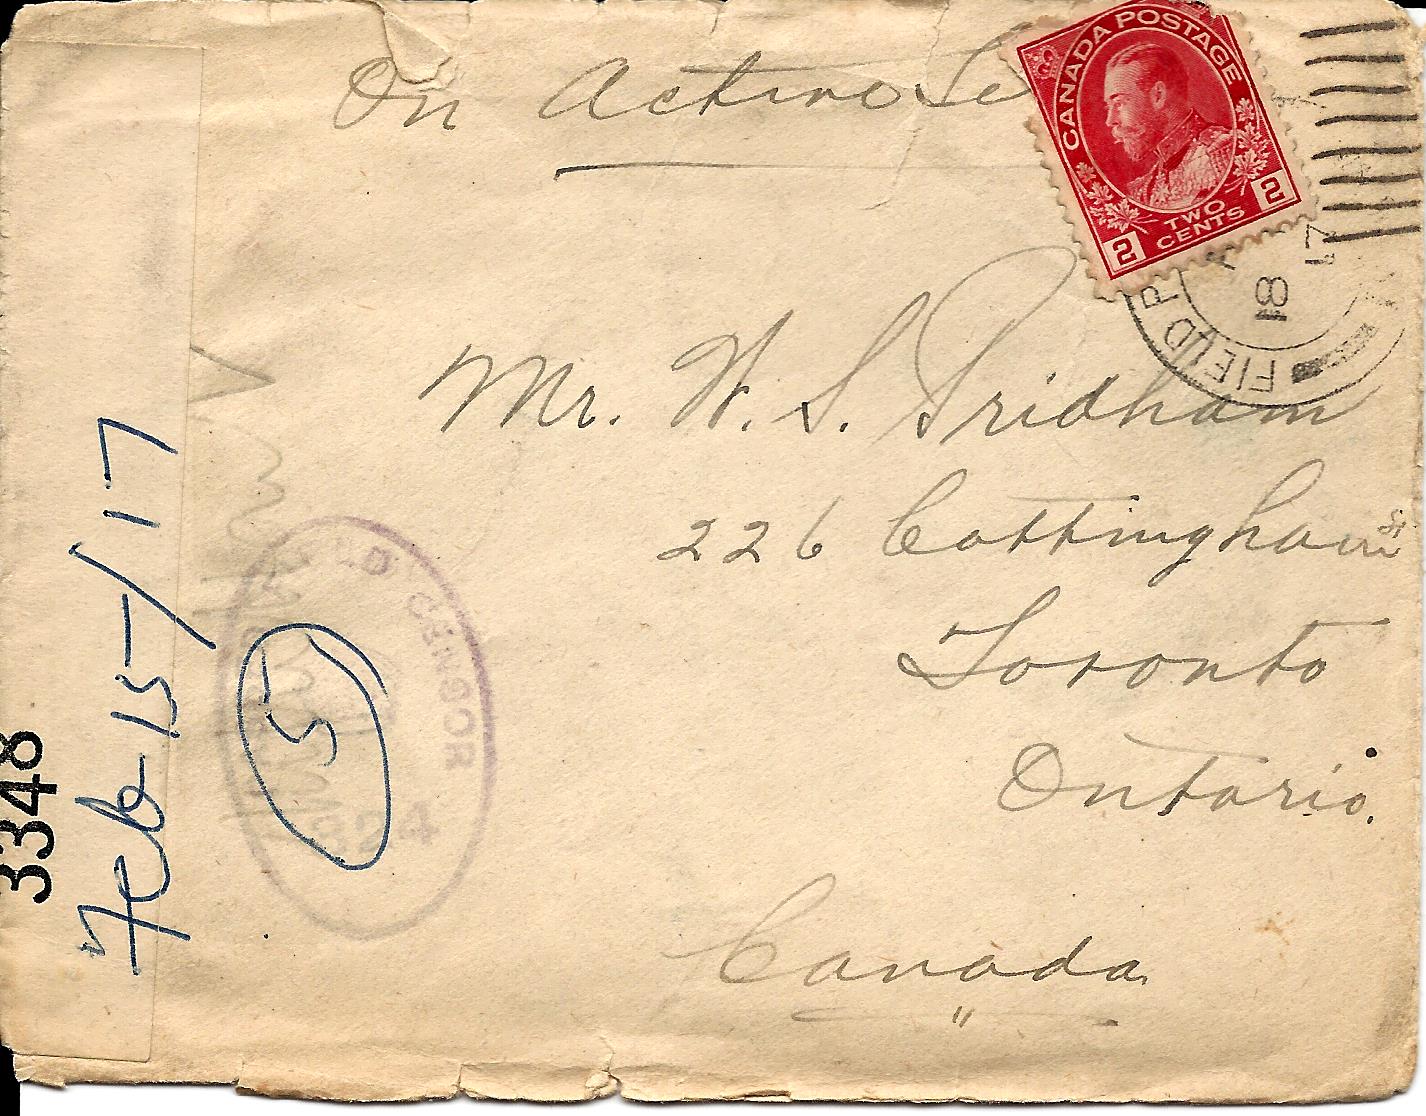 On Active Se
CANADA POSTAGE
2 TWO CENTS 2
FIELD P
18
17
Mr. W. S. Pridham
226 Cottingham St
Toronto
Ontario.
Canada
CENSOR
4
5
Feb-15-/17
3348